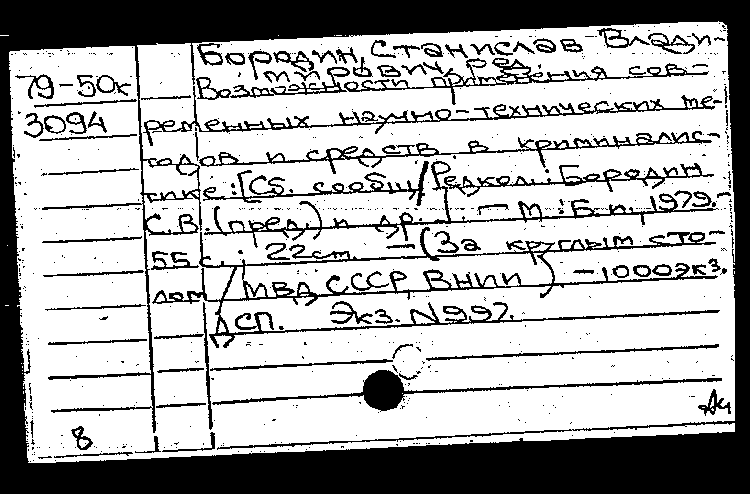 Бородин, Станислав Влади-
мирович, ред.
79-50к Возможности применения сов-
3094 ременных научно-технических ме-
тодов и средств в криминалис-
тике: [Сб. сообщ. / Редкол.: Бородин
С.В. (пред.) и др.]. - М.: Б. и., 1979.-
55 с.; 22 см. - (За круглым сто-
лом / МВД СССР, ВНИИ). - 1000 экз.
ДСП. Экз. N 997.
8